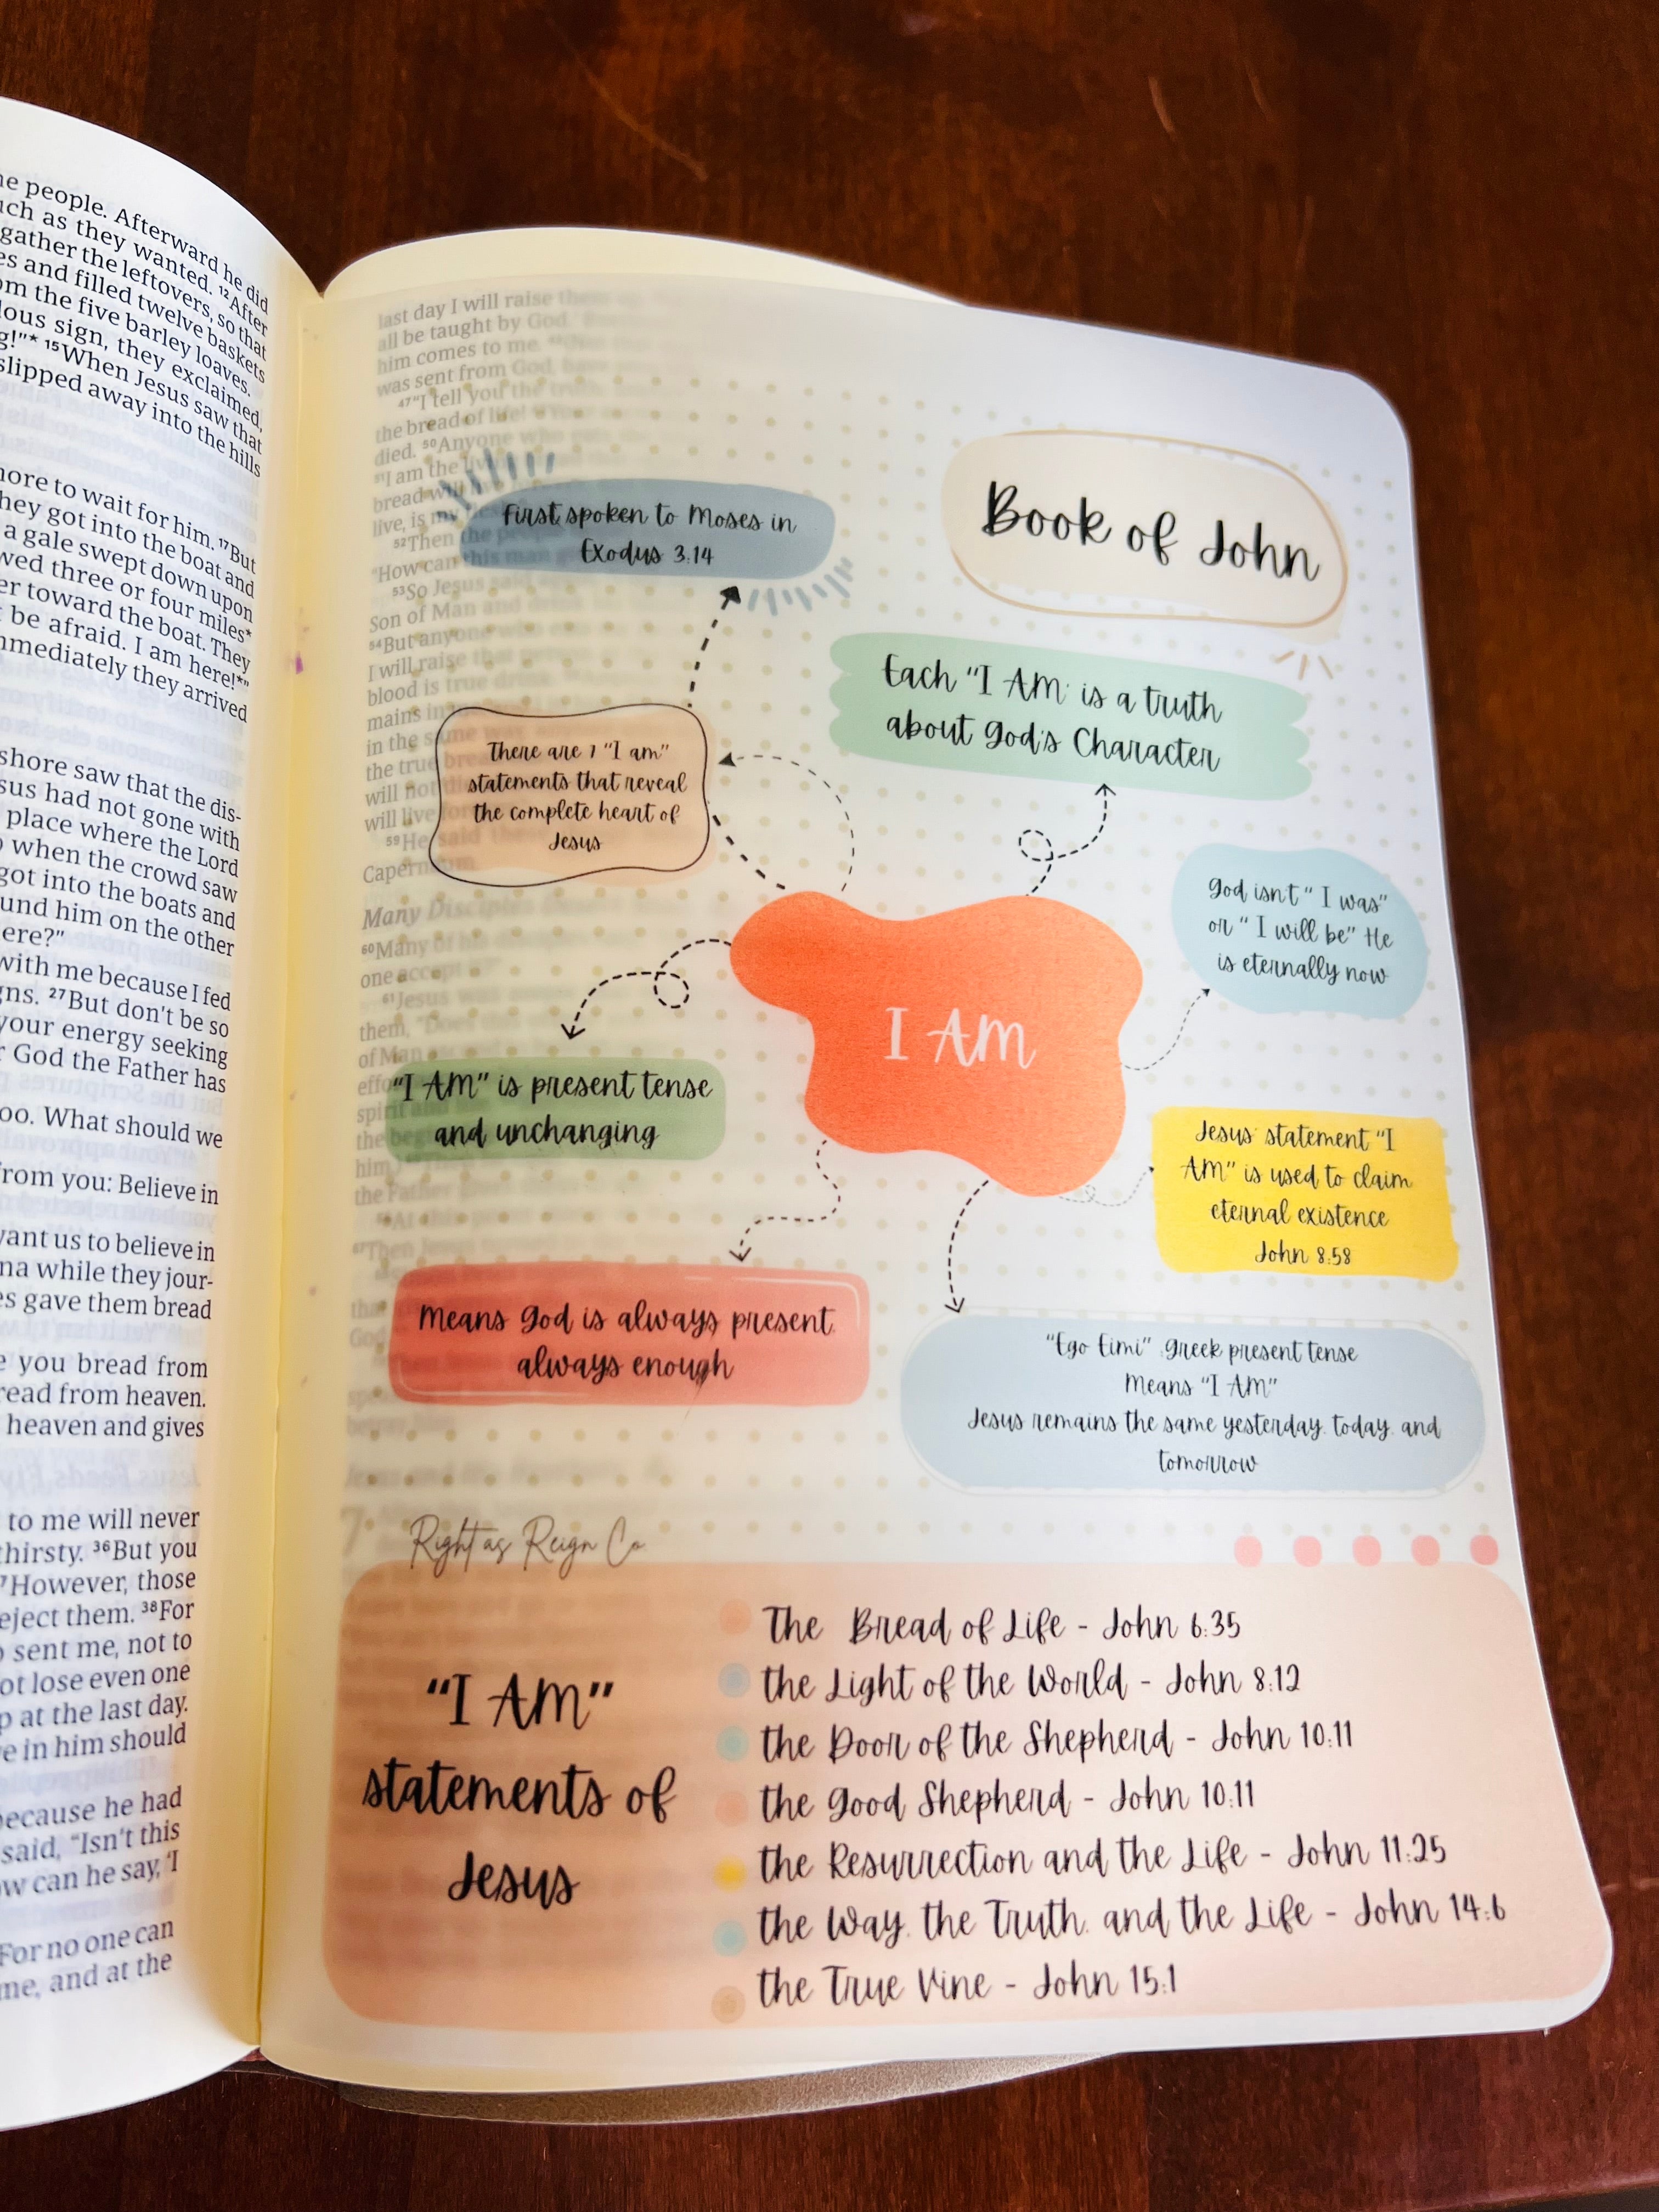 he people. Afterward he did
uch as they wanted. ¹²After
gather the leftovers, so that
es and filled twelve baskets
om the five barley loaves.
lous sign, they exclaimed,
g!"* ¹⁵When Jesus saw that
slipped away into the hills
more to wait for him. ¹⁷But
they got into the boat and
a gale swept down upon
wed three or four miles*
er toward the boat. They
be afraid. I am here!*"
mmediately they arrived
shore saw that the dis-
sus had not gone with
place where the Lord
o when the crowd saw
got into the boats and
und him on the other
ere?"
with me because I fed
gns. ²⁷But don't be so
your energy seeking
r God the Father has
oo. What should we
from you: Believe in
want us to believe in
na while they jour-
es gave them bread
e you bread from
read from heaven.
heaven and gives
to me will never
thirsty. ³⁶But you
⁷However, those
eject them. ³⁸For
o sent me, not to
ot lose even one
p at the last day.
e in him should
because he had
said, "Isn't this
ow can he say, 'I
For no one can
me, and at the
last day I will raise them
all be taught by God.
him comes to me.
was sent from God,
⁴⁷"I tell you the truth,
the bread of life!
died. ⁵⁰Anyone who
⁵¹I am the
bread will
live, is my
⁵²Then the people
"How can this man
⁵³So Jesus said
Son of Man and
⁵⁴But anyone who
I will raise that
blood is true drink.
mains in
in the same
the true bread
will not
will live
⁵⁹He said
Capernaum.
Many Disciples
⁶⁰Many of his
one accept
⁶¹Jesus was
them, "Does
of Man
spirit and
him
the Father
Then Jesus
Book of John
First spoken to Moses in
Exodus 3:14
Each "I AM" is a truth
about God's Character
There are 7 "I am"
statements that reveal
the complete heart of
Jesus
God isn't " I was"
or " I will be" He
is eternally now
I AM
"I AM" is present tense
and unchanging
Jesus' statement "I
AM" is used to claim
eternal existence
John 8:58
Means God is always present,
always enough
"Ego Eimi" Greek present tense
Means "I AM"
Jesus remains the same yesterday, today, and
tomorrow
Right as Reign Co
"I AM"
statements of
Jesus
The Bread of Life - John 6:35
the Light of the World - John 8:12
the Door of the Shepherd - John 10:11
the Good Shepherd - John 10:11
the Resurrection and the Life - John 11:25
the Way, the Truth, and the Life - John 14:6
the True Vine - John 15:1